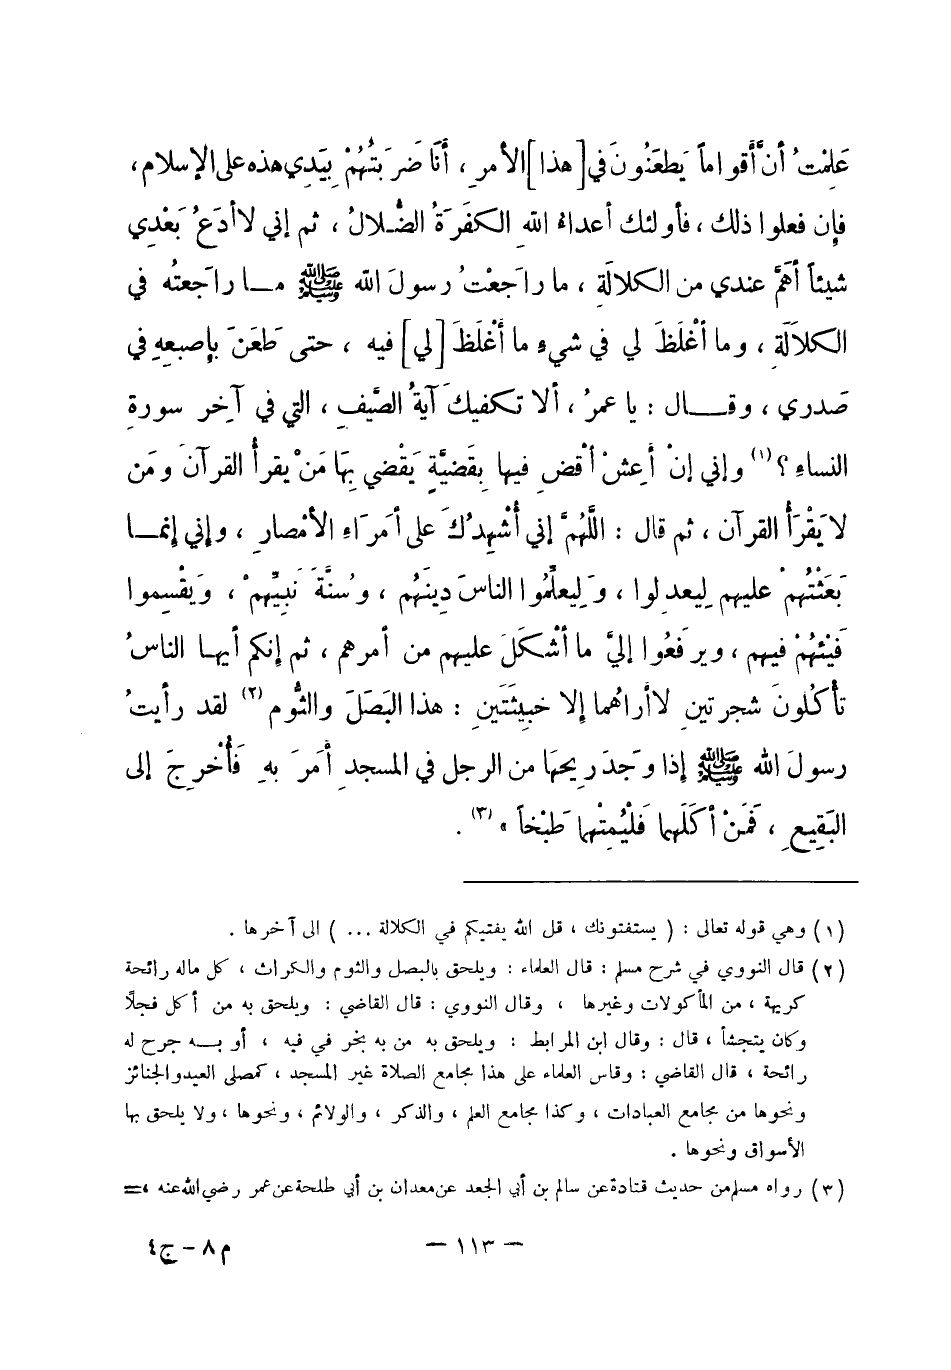 عَلِمْتُ أنَّ أقواماً يَطعَنُونَ في [هذا] الأمرِ ، أنَا ضَرَبتُهُمْ بِيَدِي هذه على الإسلام ،
فإن فعلوا ذلك ، فأولئك أعداءُ اللهِ الكفَرَةُ الضُّلالُ ، ثم إني لا أدَعُ بَعْدِي
شيئاً أهَمَّ عندي من الكلالَةِ ، ما راجَعْتُ رسولَ الله ﷺ مـا راجَعتُه في
الكلاَلَةِ ، وما أغْلَظَ لي في شيءٍ ما أغْلَظَ [لي] فيه ، حتى طَعَنَ بإصبعِهِ في
صَدري ، وقـــال : يا عمرُ ، ألا تكفيكَ آيةُ الصَّيفِ ، التي في آخِرِ سورةِ
النساءِ ؟(١) وإني إنْ أعِشْ أقضِ فيها بِقَضيَّةٍ يَقْضي بِهَا مَنْ يقرأُ القرآنَ ومَن
لا يَقْرَأُ القرآن ، ثم قال : اللَّهُمَّ إني أُشْهِدُكَ على أمَراءِ الأمْصارِ ، وإني إنمـا
بَعَثْتُهُمْ عليهم لِيعدِلوا ، وَلِيعلِّمُوا الناسَ دِينَهُم ، وسُنَّةَ نَبيِّهمْ ، وَيَقْسِموا
فَيْئَهُمْ فيهم ، ويرفَعُوا إليَّ ما أشْكَلَ عليهم من أمرهم ، ثم إنكم أيهـا الناسُ
تأكُلونَ شجرتين لا أراهُما إلا خبيثَتَينِ : هذا البَصَلَ والثُّوم(٢) لقد رأيتُ
رسولَ الله ﷺ إذا وجَدَ ريحَها من الرجل في المسجدِ أمَرَ بهِ فَأُخْرِجَ إلى
البَقِيعِ ، فَمَنْ أكَلَهما فَلْيُمِتْهما طَبْخاً » (٣) .
(١) وهي قوله تعالى : ( يستفتونك ، قل الله يفتيكم في الكلالة ... ) الى آخرها .
(٢) قال النووي في شرح مسلم : قال العلماء : ويلحق بالبصل والثوم والكراث ، كل ماله رائحة
كريهة ، من المأكولات وغيرها ، وقال النووي : قال القاضي : ويلحق به من أكل فجلاً
وكان يتجشأ ، قال : وقال ابن المرابط : ويلحق به من به بخر في فيه ، أو بـــه جرح له
رائحة ، قال القاضي : وقاس العلماء على هذا مجامع الصلاة غير المسجد ، كمصلى العيد والجنائز
ونحوها من مجامع العبادات ، وكذا مجامع العلم ، والذكر ، والولائم ، ونحوها ، ولا يلحق بها
الأسواق ونحوها .
(٣) رواه مسلم من حديث قتادة عن سالم بن أبي الجعد عن معدان بن أبي طلحة عن عمر رضي الله عنه ، =
— ١١٣ —
م ٨ – ج ٤